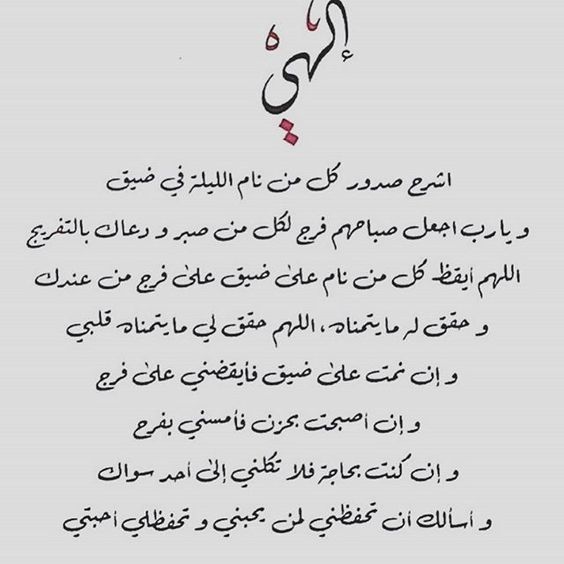 إلهي
اشرح صدور كل من نام الليلة في ضيق
و يارب اجعل صباحهم فرج لكل من صبر و دعاك بالتفريج
اللهم أيقظ كل من نام على ضيق على فرج من عندك
و حقق له ما يتمناه، اللهم حقق لي ما يتمناه قلبي
و إن نمت على ضيق فأيقضني على فرج
و إن أصبحت بحزن فأمسني بفرح
و إن كنت بحاجة فلا تكلني إلى أحد سواك
و أسألك أن تحفظني لمن يحبني و تحفظلي أحبتي